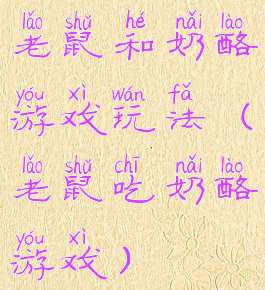 lǎo shǔ hé nǎi lào
老鼠和奶酪
yóu xì wán fǎ
游戏玩法（
lǎo shǔ chī nǎi lào
老鼠吃奶酪
yóu xì
游戏）